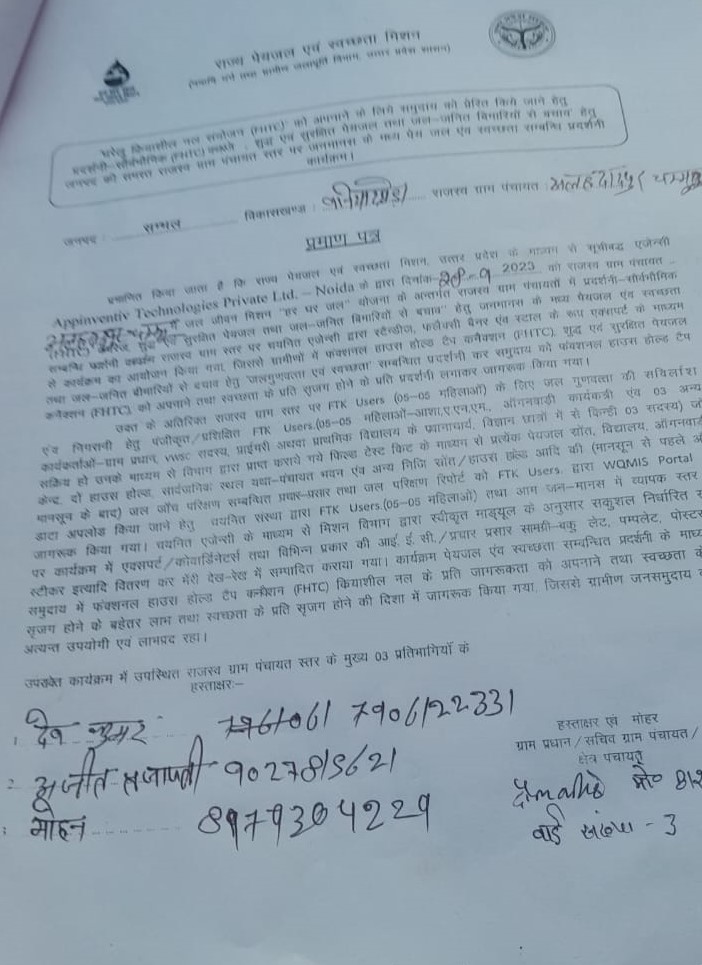 राज्य पेयजल एवं स्वच्छता मिशन
(नमामि गंगे तथा ग्रामीण जलापूर्ति विभाग, उत्तर प्रदेश शासन)
घरेलू क्रियाशील नल संयोजन (FHTC) को अपनाने के लिये समुदाय को प्रेरित किये जाने हेतु
प्रदर्शनी-सौर्वभौमिक (FHTC) कवरेज : शुद्ध एवं सुरक्षित पेयजल तथा जल-जनित बिमारियों से बचाव हेतु
जनपद की समस्त राजस्व ग्राम पंचायत स्तर पर जनमानस के मध्य पेय जल एंव स्वच्छता सम्बन्धि प्रदर्शनी
कार्यक्रम।
जनपद : सम्भल विकासखण्ड : राजस्व ग्राम पंचायत :
प्रमाण पत्र
प्रमाणित किया जाता है कि राज्य पेयजल एवं स्वच्छता मिशन, उत्तर प्रदेश के माध्यम से सूचीबद्ध एजेन्सी
Appinventiv Technologies Private Ltd. – Noida के द्वारा दिनांक- 28-9 2023 को राजस्व ग्राम पंचायत -
में जल जीवन मिशन "हर घर जल" योजना के अन्तर्गत राजस्व ग्राम पंचायतों में प्रदर्शनी-सौर्वभौमिक
(FHTC) कवरेज शुद्ध एवं सुरक्षित पेयजल तथा जल-जनित बिमारियों से बचाव" हेतु जनमानस के मध्य पेयजल एंव स्वच्छता
सम्बन्धि प्रदर्शनी कार्यक्रम राजस्व ग्राम स्तर पर चयनित एजेन्सी द्वारा स्टैन्डीज, फ्लैक्सी बैनर एंव स्टाल के रूप एक्सपर्ट के माध्यम
से कार्यक्रम का आयोजन किया गया, जिससे ग्रामीणों में फंक्शनल हाउस होल्ड टैप कनैक्शन (FHTC), शुद्ध एवं सुरक्षित पेयजल
तथा जल-जनित बीमारियों से बचाव हेतु 'जलगुणवत्ता एवं स्वच्छता' सम्बन्धित प्रदर्शनी कर समुदाय को फंक्शनल हाउस होल्ड टैप
कनैक्शन (FHTC) को अपनाने तथा स्वच्छता के प्रति सृजग होने के प्रति प्रदर्शनी लगाकर जागरूक किया गया।
उक्त के अतिरिक्त राजस्व ग्राम स्तर पर FTK Users (05-05 महिलाओं) के लिए जल गुणवत्ता की सर्विलांश
एंव निगरानी हेतु पंजीकृत/प्रशिक्षित FTK Users.(05-05 महिलाओं-आशा,ए.एन.एम., ऑगनवाड़ी कार्यकत्री एंव 03 अन्य
कार्यकर्ताओं-ग्राम प्रधान, VWSC सदस्य, प्राईमरी अथवा प्राथमिक विद्यालय के प्रधानाचार्य, विज्ञान छात्रों में से किन्ही 03 सदस्य) जो
सक्रिय हो उनके माध्यम से विभाग द्वारा प्राप्त कराये गये फिल्ड टेस्ट किट के माध्यम से प्रत्येक पेयजल स्रोत, विद्यालय, ऑगनवाड़ी
केन्द, दो हाउस होल्ड, सार्वजनिक स्थल यथा-पंचायत भवन एंव अन्य निजि स्रोत/हाउस होल्ड आदि की (मानसून से पहले
मानसून के बाद) जल जॉच परिक्षण सम्बन्धित प्रचार-प्रसार तथा जल परिक्षण रिपोर्ट को FTK Users. द्वारा WQMIS Portal
डाटा अपलोड किया जाने हेतु चयनित संस्था द्वारा FTK Users.(05-05 महिलाओं) तथा आम जन-मानस में व्यापक स्तर
जागरूक किया गया। चयनित एजेन्सी के माध्यम से मिशन विभाग द्वारा स्वीकृत माड्यूल के अनुसार सकुशल निर्धारित
पर कार्यक्रम में एक्सपर्ट/कोवार्डिनेटर्स तथा विभिन्न प्रकार की आई. ई. सी./प्रचार प्रसार सामग्री-बुक लेट, पम्पलेट, पोस्टर
स्टीकर इत्यादि वितरण कर मेरी देख-रेख में सम्पादित कराया गया। कार्यक्रम पेयजल एंव स्वच्छता सम्बन्धित प्रदर्शनी के
समुदाय में फंक्शनल हाउस होल्ड टैप कनैक्शन (FHTC) कियाशील नल के प्रति जागरूकता को अपनाने तथा स्वच्छता
सृजग होने के बहेतर लाभ तथा स्वच्छता के प्रति सृजग होने की दिशा में जागरूक किया गया, जिससे ग्रामीण जनसमुदाय
अत्यन्त उपयोगी एवं लाभप्रद रहा।
उपरोक्त कार्यक्रम में उपस्थित राजस्व ग्राम पंचायत स्तर के मुख्य 03 प्रतिभागियों कं
हस्ताक्षर:-
देव कुमार 7906122331
2 9027815621
मोहन 8979304229
हस्ताक्षर एवं मोहर
ग्राम प्रधान/सचिव ग्राम पंचायत/
क्षेत्र पंचायत्
मो०
वार्ड संख्या - 3